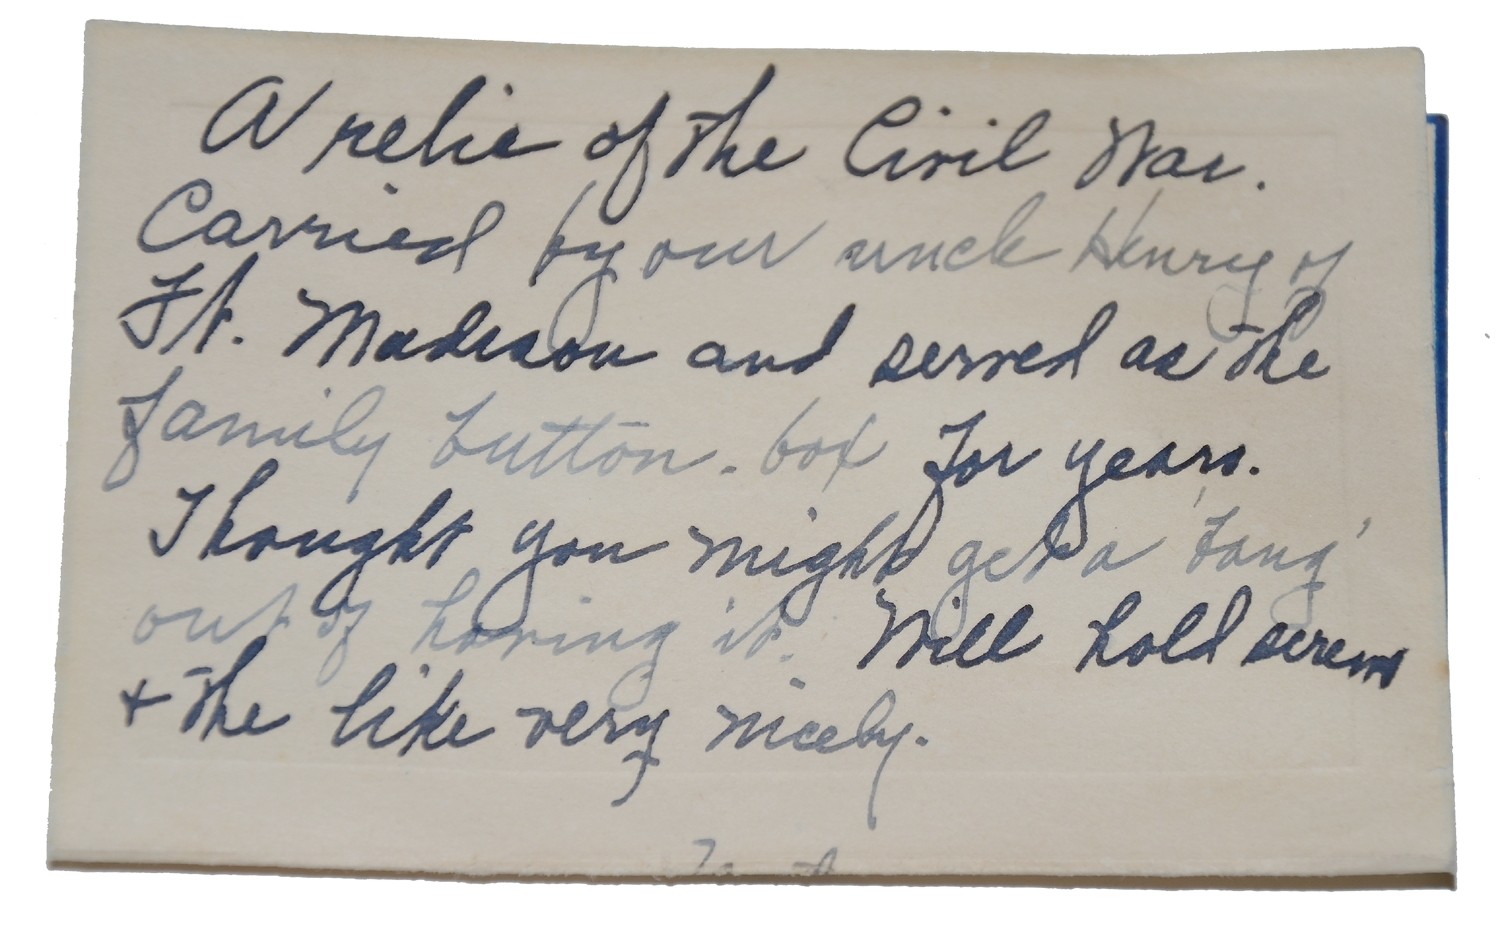 A relic of the Civil War.
Carried by our uncle Henry of
Ft. Madison and served as the
family button-box for years.
Thought you might get a 'bang'
out of having it. Will hold screws
+ the like very nicely.